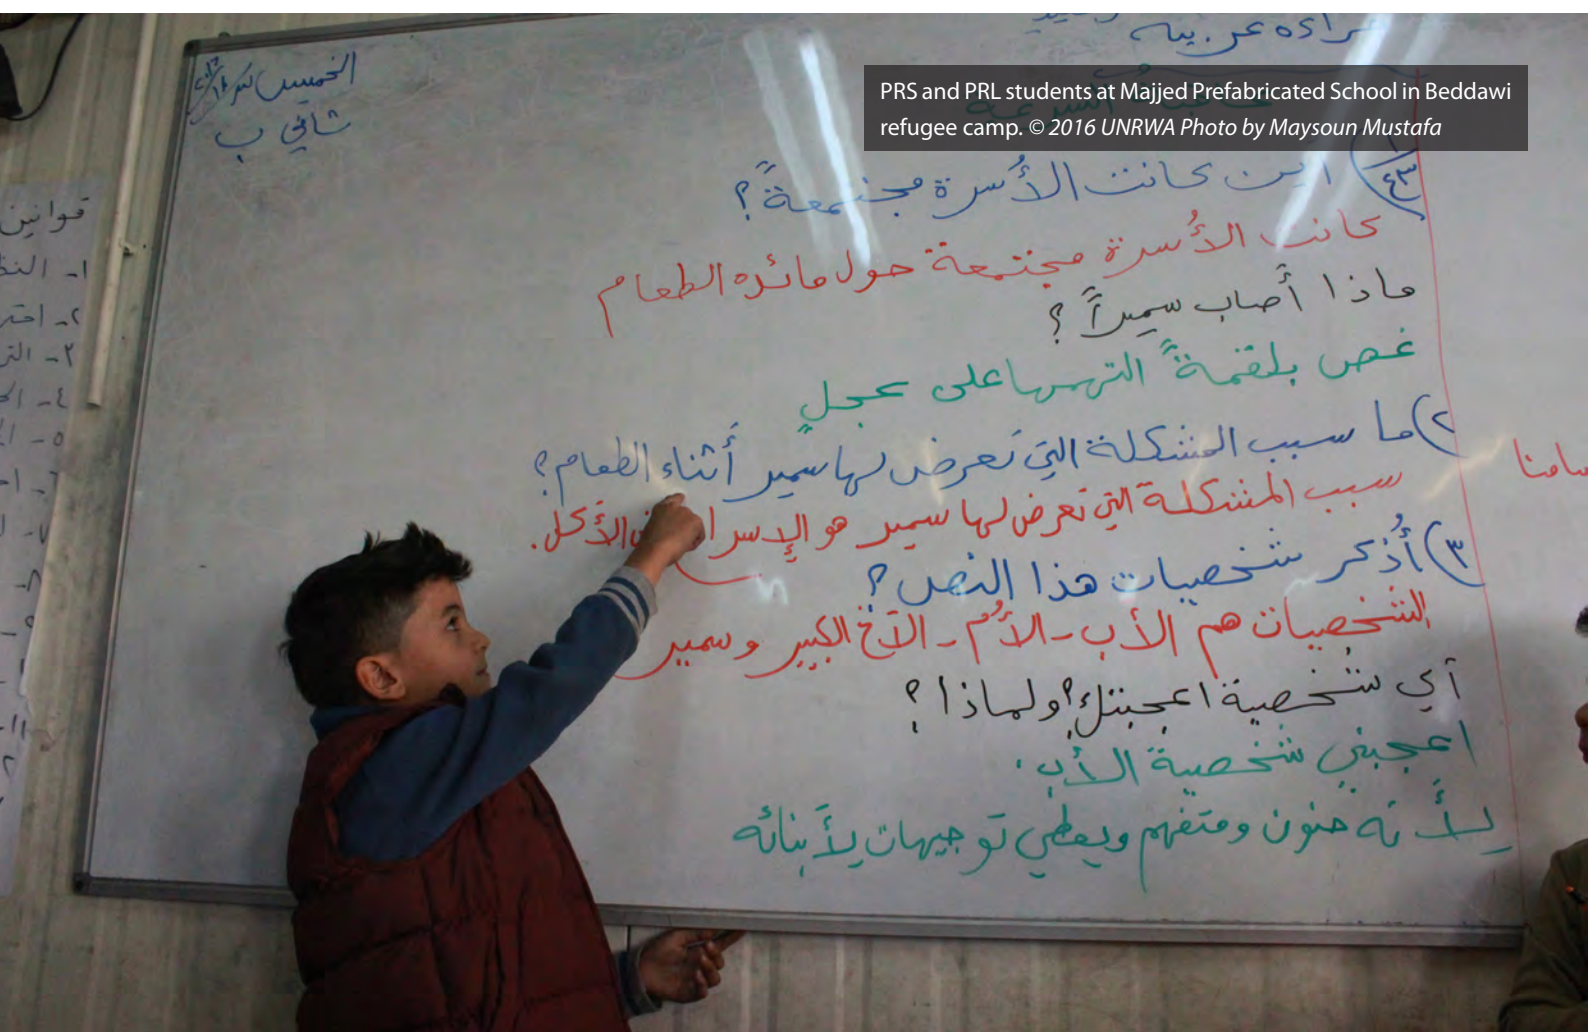 قراءة عربية
PRS and PRL students at Majjed Prefabricated School in Beddawi
refugee camp. © 2016 UNRWA Photo by Maysoun Mustafa
الخميس
ثاني ب
١/٤٣) أين كانت الأُسرة مجتمعةً؟
كانت الأُسرة مجتمعة حول مائده الطعام
ماذا أَصاب سميراً؟
غص بلقمةً التهمها على عجلٍ
٢) ما سبب المشكلة التي تعرض لها سمير أَثناء الطعام؟
سبب المشكلة التي تعرض لها سمير هو الإسرا الأَكل.
٣) أُذكر شخصيات هذا النص؟
الشخصيات هم الأَب - الأُم - الأَخ الكبير وسمير
أي شخصية اعجبتك؟ ولماذا؟
اعجبني شخصية الأب.
لأَنه حنون ومتفهم ويعطي توجيهات لأَبنائه
قوانين
١-
٢-
٣-
٤-
٥-